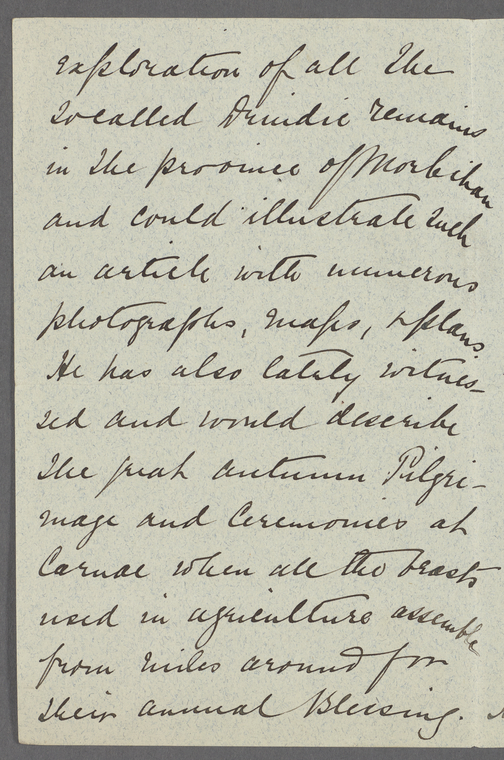 exploration of all the
so called Druidic remains
in the province of Morbihan
and could illustrate such
an article with numerous
photographs, maps, & plans.
He has also lately witnes-
sed and would describe
the great autumn Pilgri-
mage and Ceremonies at
Carnac when all the beasts
used in agriculture assemble
from miles around for
their annual Blessing.